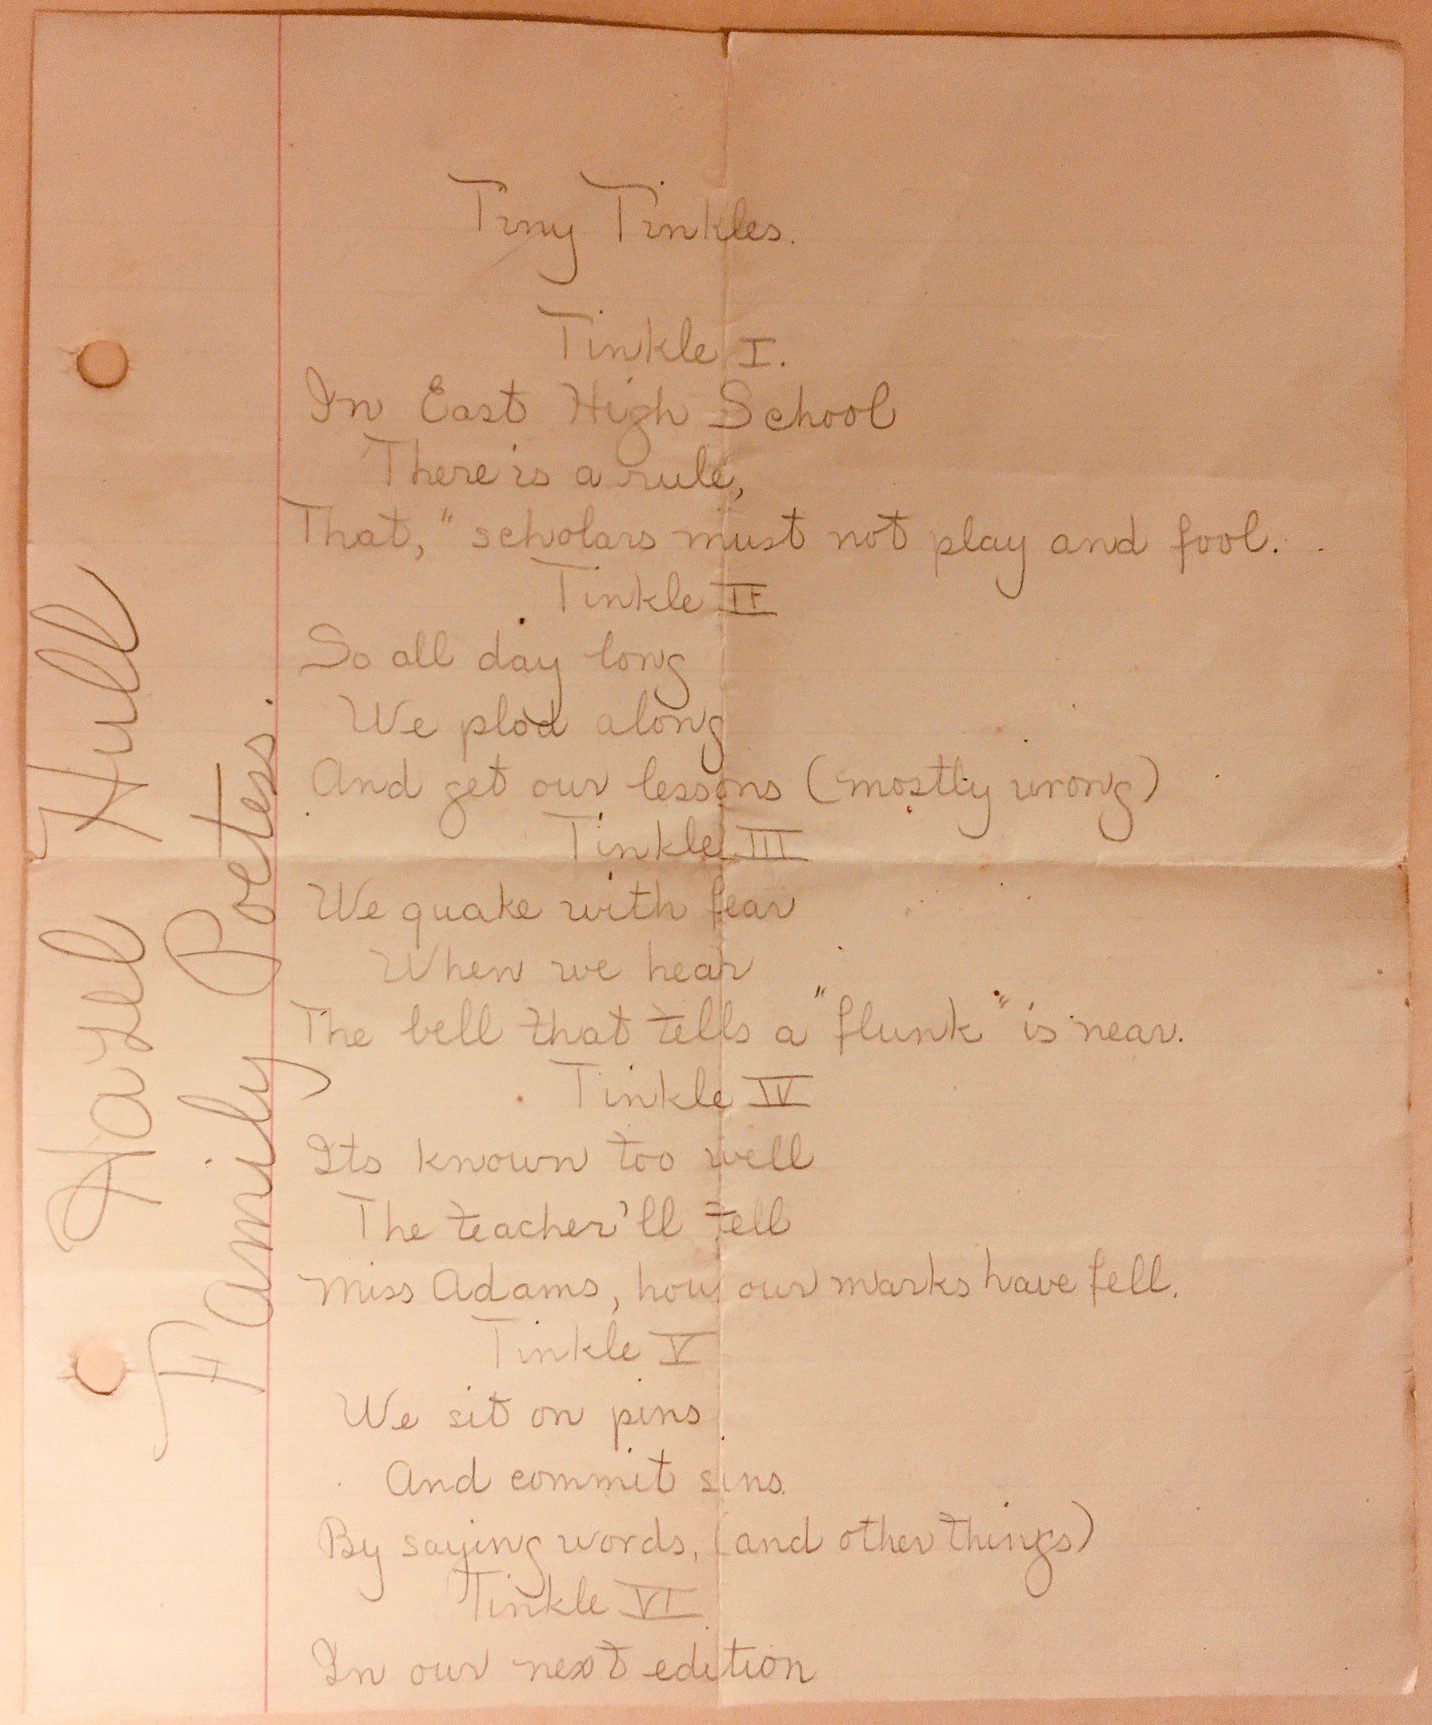 Tiny Tinkles.
Tinkle I.
In East High School
There is a rule,
That, " scholars must not play and fool.
Tinkle II
So all day long
We plod along
And get our lessons (mostly wrong)
Tinkle III
We quake with fear
When we hear
The bell that tells a "flunk" is near.
Tinkle IV
Its known too well
The teacher'll tell
Miss Adams, how our marks have fell.
Tinkle V
We sit on pins
And commit sins.
By saying words, (and other things)
Tinkle VI
In our next edition
Hazel Hull
Family Poetess.